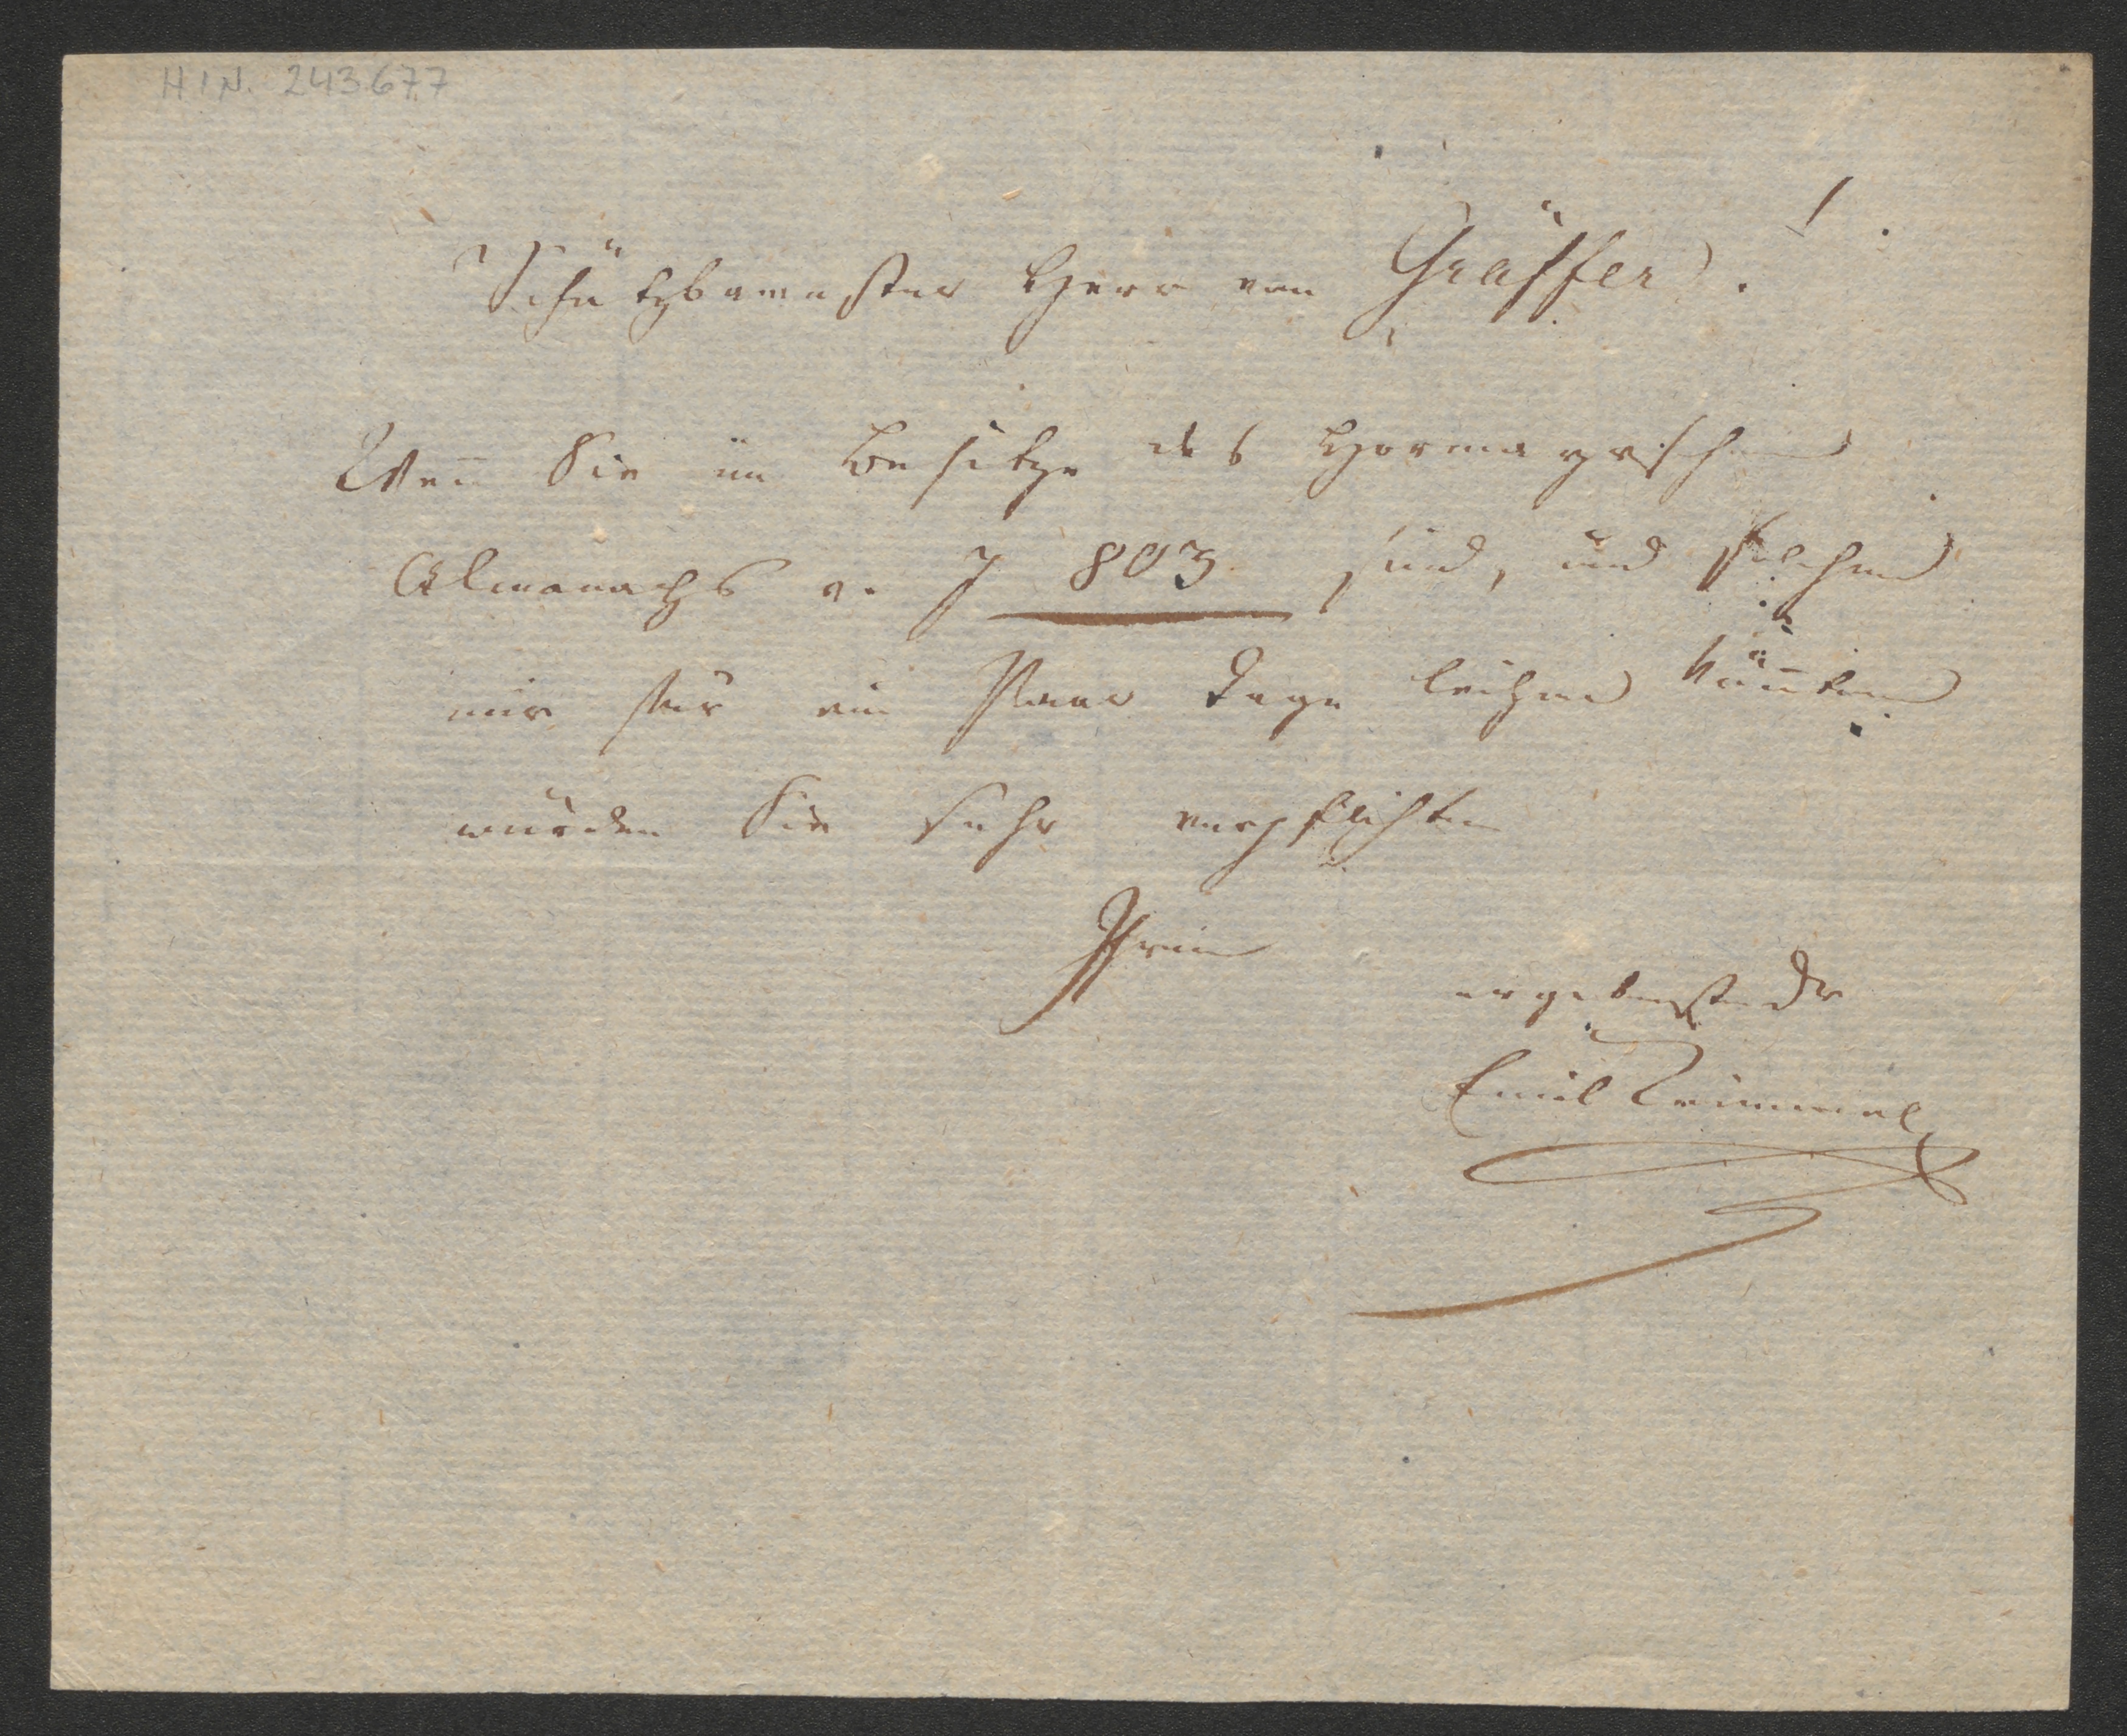 H.I.N. 243677
Schätzbarnester Herr von Gräffer!
Wen̄ Sie im Besitze des Hormayrischen
Almanachs v. J 803 sind, und solchen
mir für ein Paar Tage leihen kön̄ten
würden Sie sehr verpflichten
Ihren
ergebensten Dr
Emil Trimmel